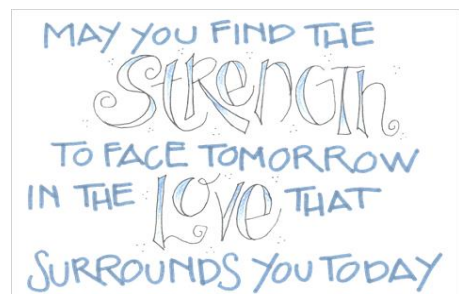 MAY YOU FIND THE
STRENGTH
TO FACE TOMORROW
IN THE LOVE THAT
SURROUNDS YOU TODAY